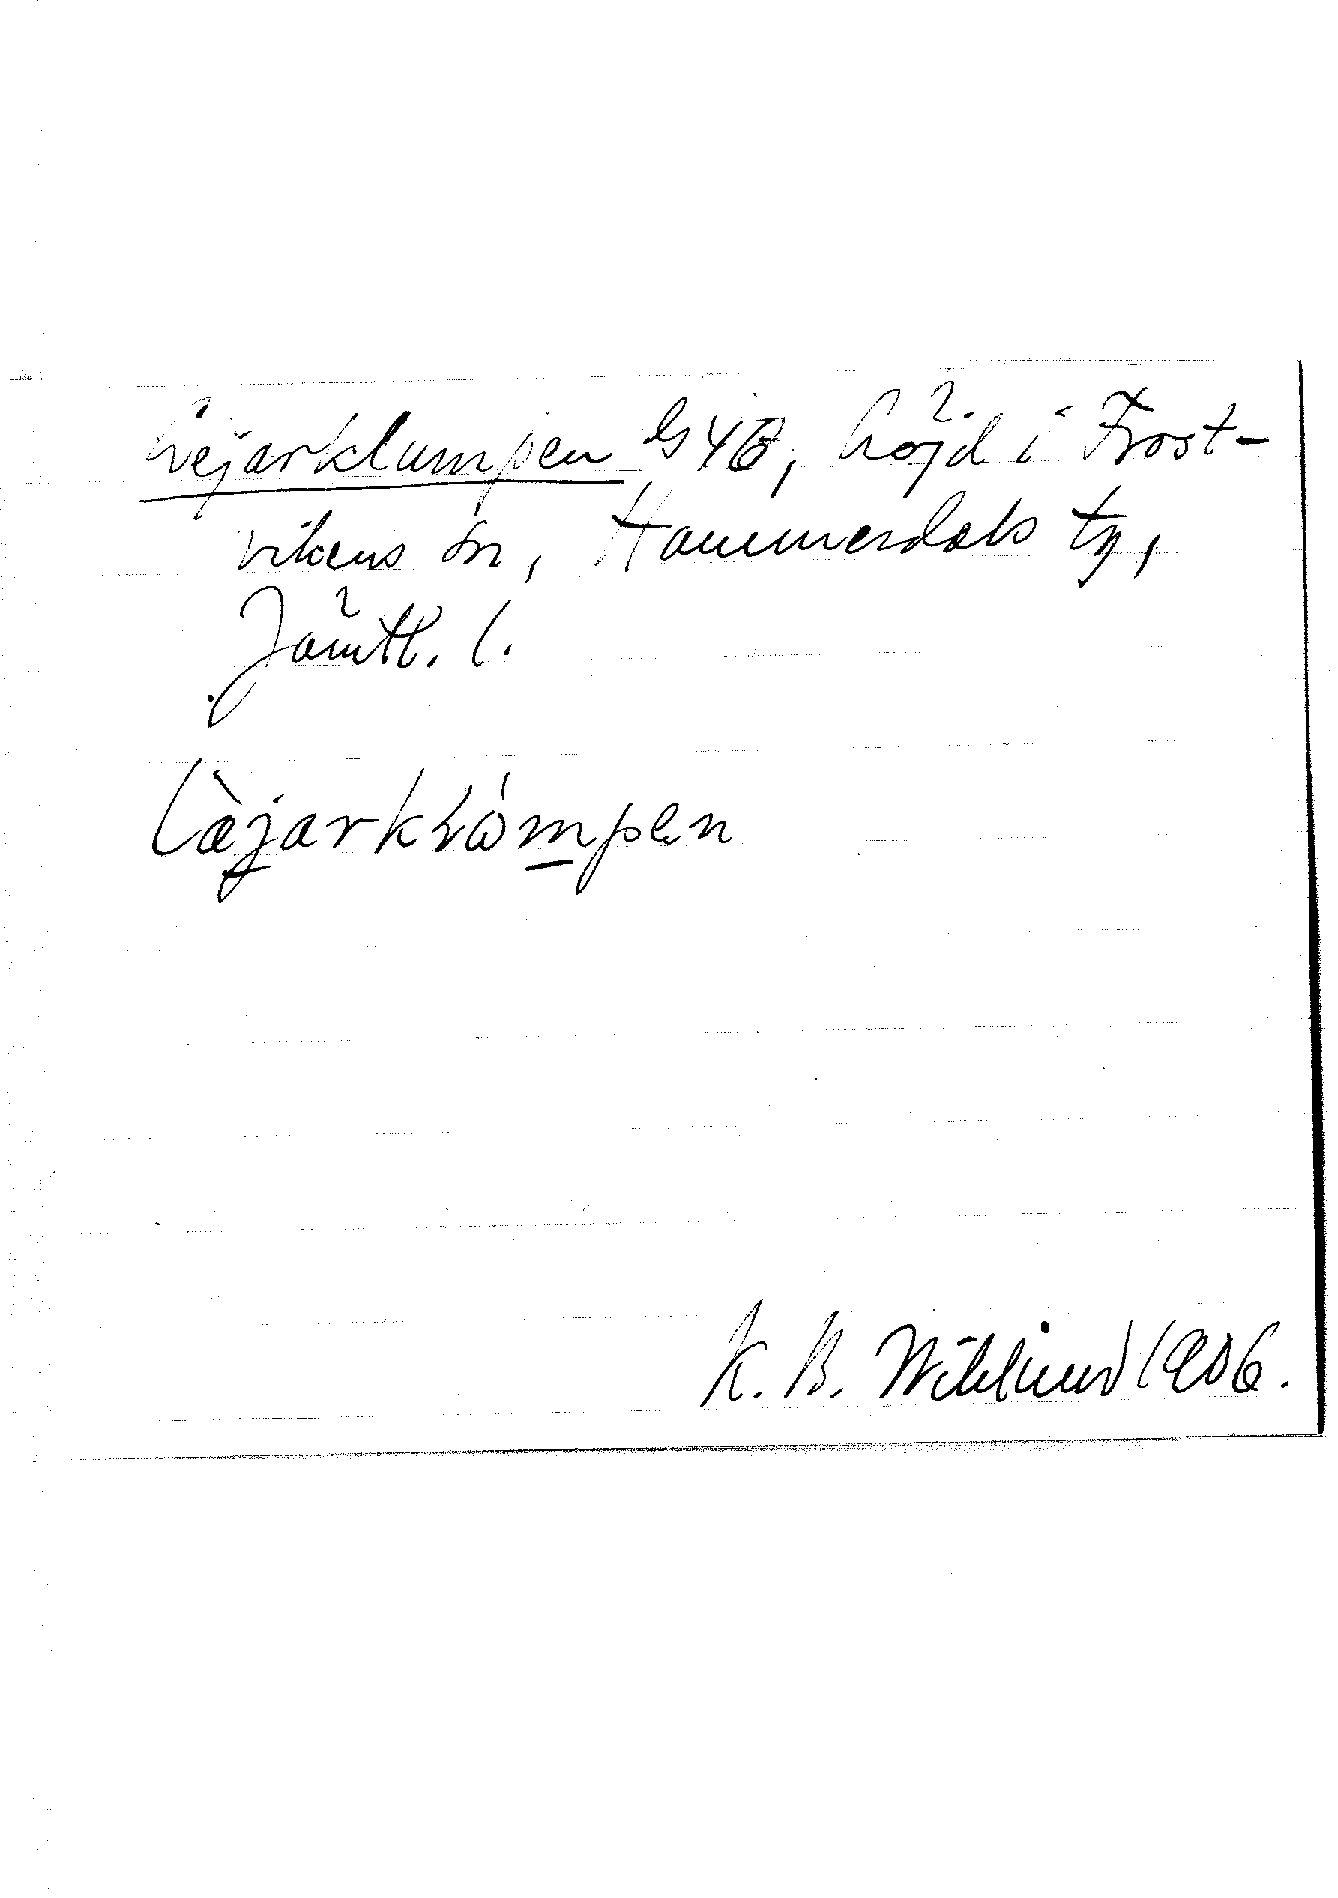 Lejarklumpen G4B, höjd i Frost-
vikens sn, Hammerdals tg,
Jämtl. l.
làjarkLómpen
K. B. Wiklund 1906.